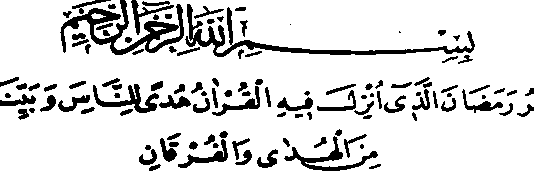 بِسْمِ اللهِ الرَّحْمٰنِ الرَّحِيْمِ
رُ رَمَضَانَ الَّذِىٓ اُنْزِلَ فِيْهِ الْقُرْاٰنُ هُدًى لِلنَّاسِ وَ بَيِّنَ
مِنَ الْهُدٰى وَالْفُرْقَانِ